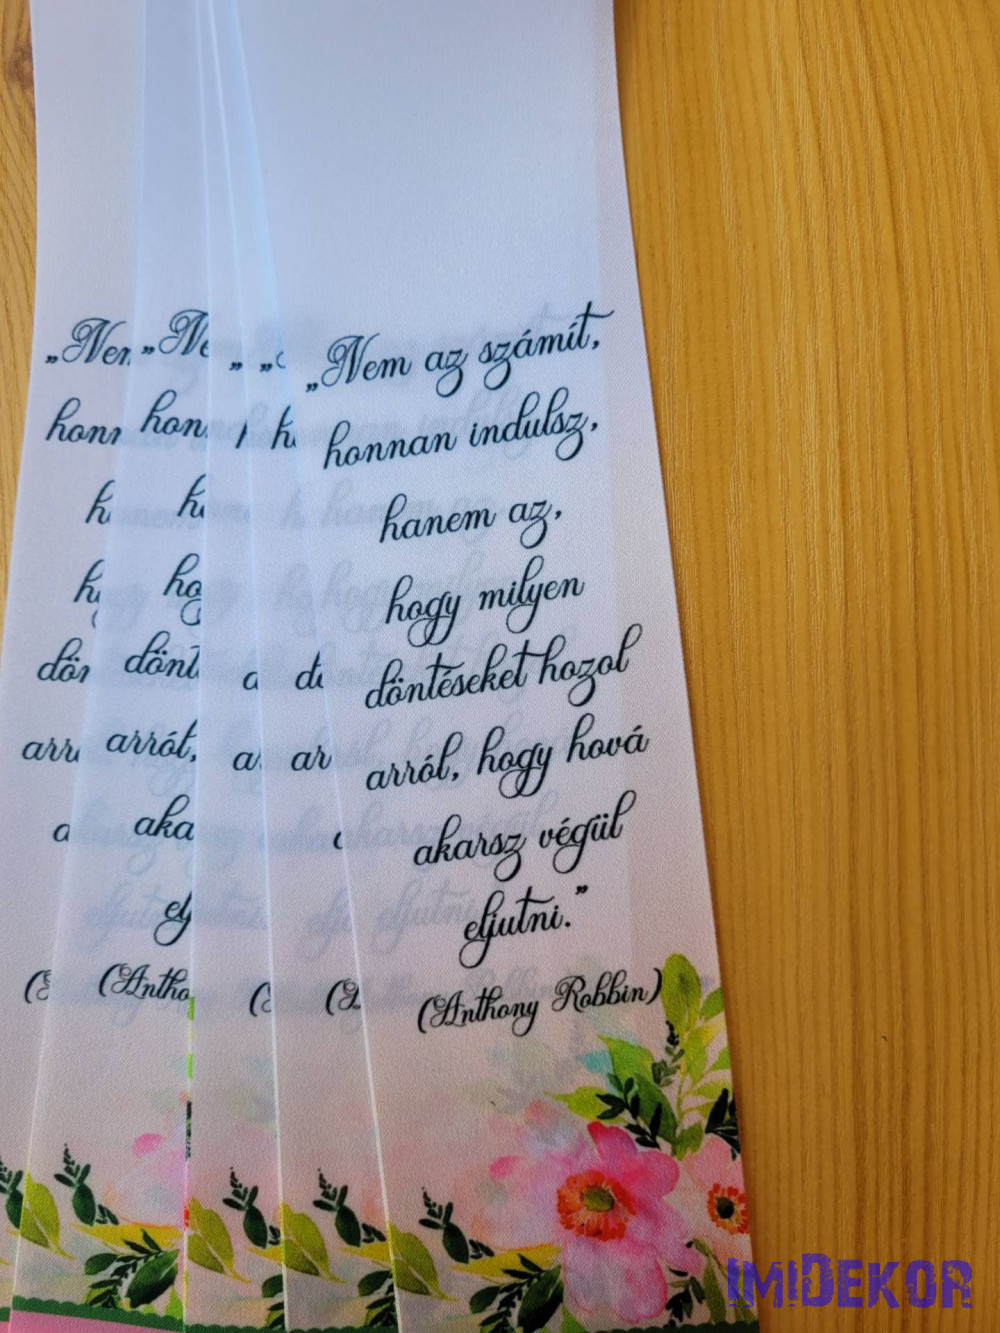 „Nem az számít,
honnan indulsz,
hanem az,
hogy milyen
döntéseket hozol
arról, hogy hová
akarsz végül
eljutni.”
(Anthony Robbin)
IMIDEKOR